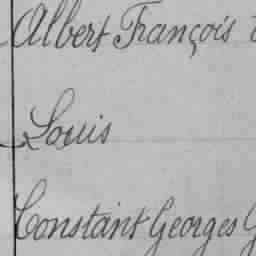 Albert François
Louis
Constant Georges